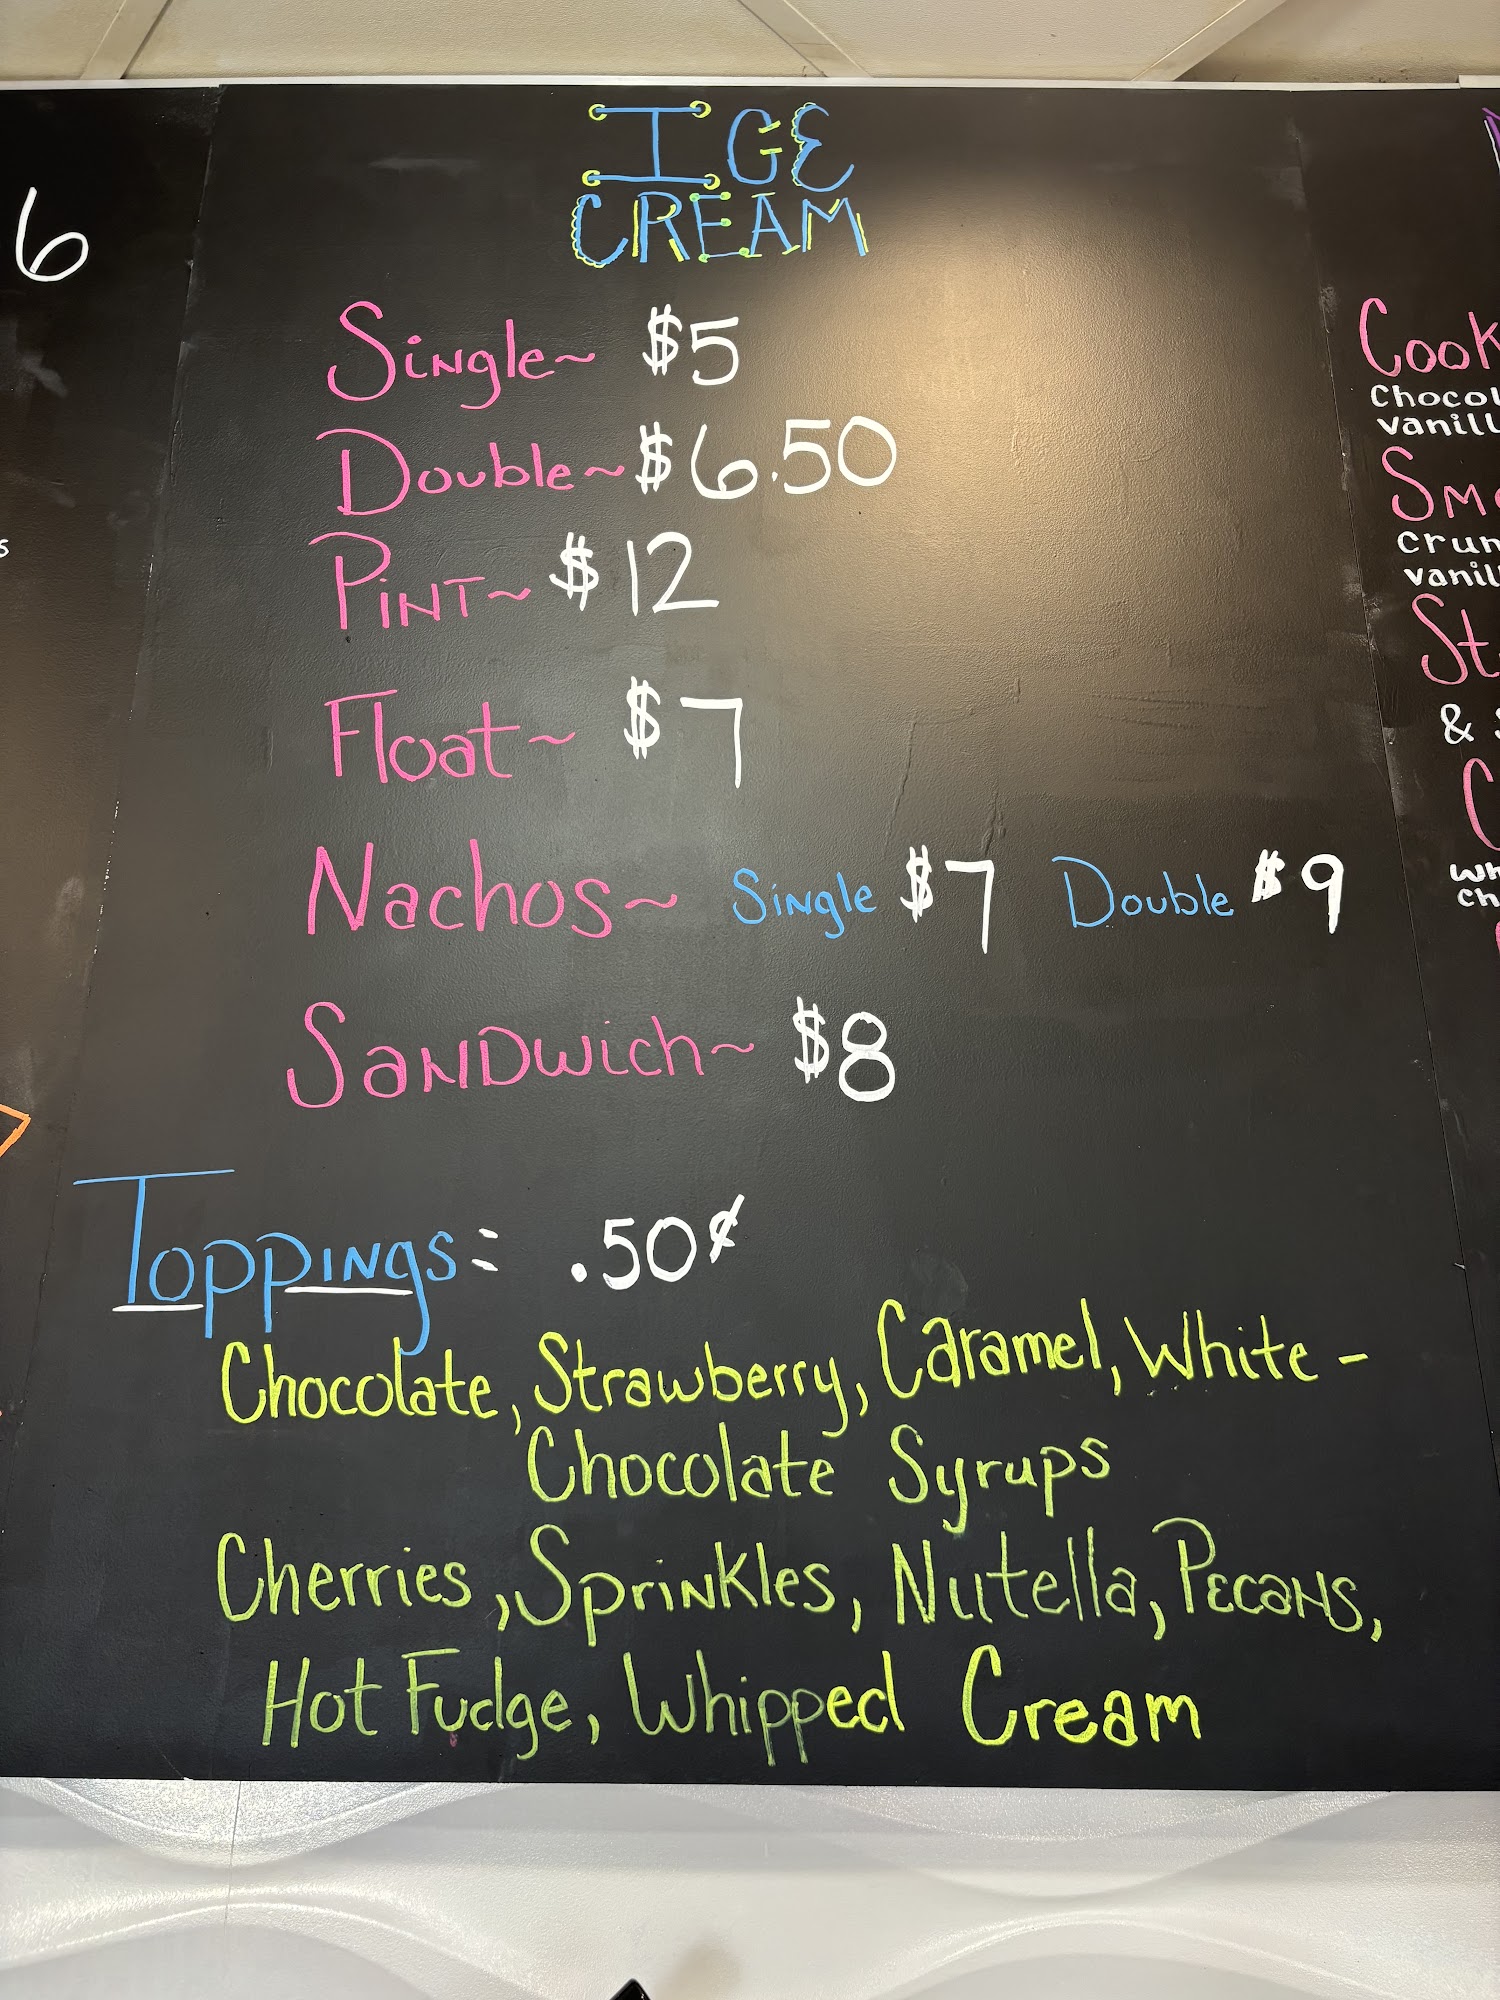 ICE
CREAM
Single~ $5
Double~ $6.50
Pint~ $12
Float~ $7
Nachos~ Single $7 Double $9
Sandwich~ $8
Toppings: .50¢
Chocolate, Strawberry, Caramel, White-
Chocolate Syrups
Cherries, Sprinkles, Nutella, Pecans,
Hot Fudge, Whipped Cream
6
&